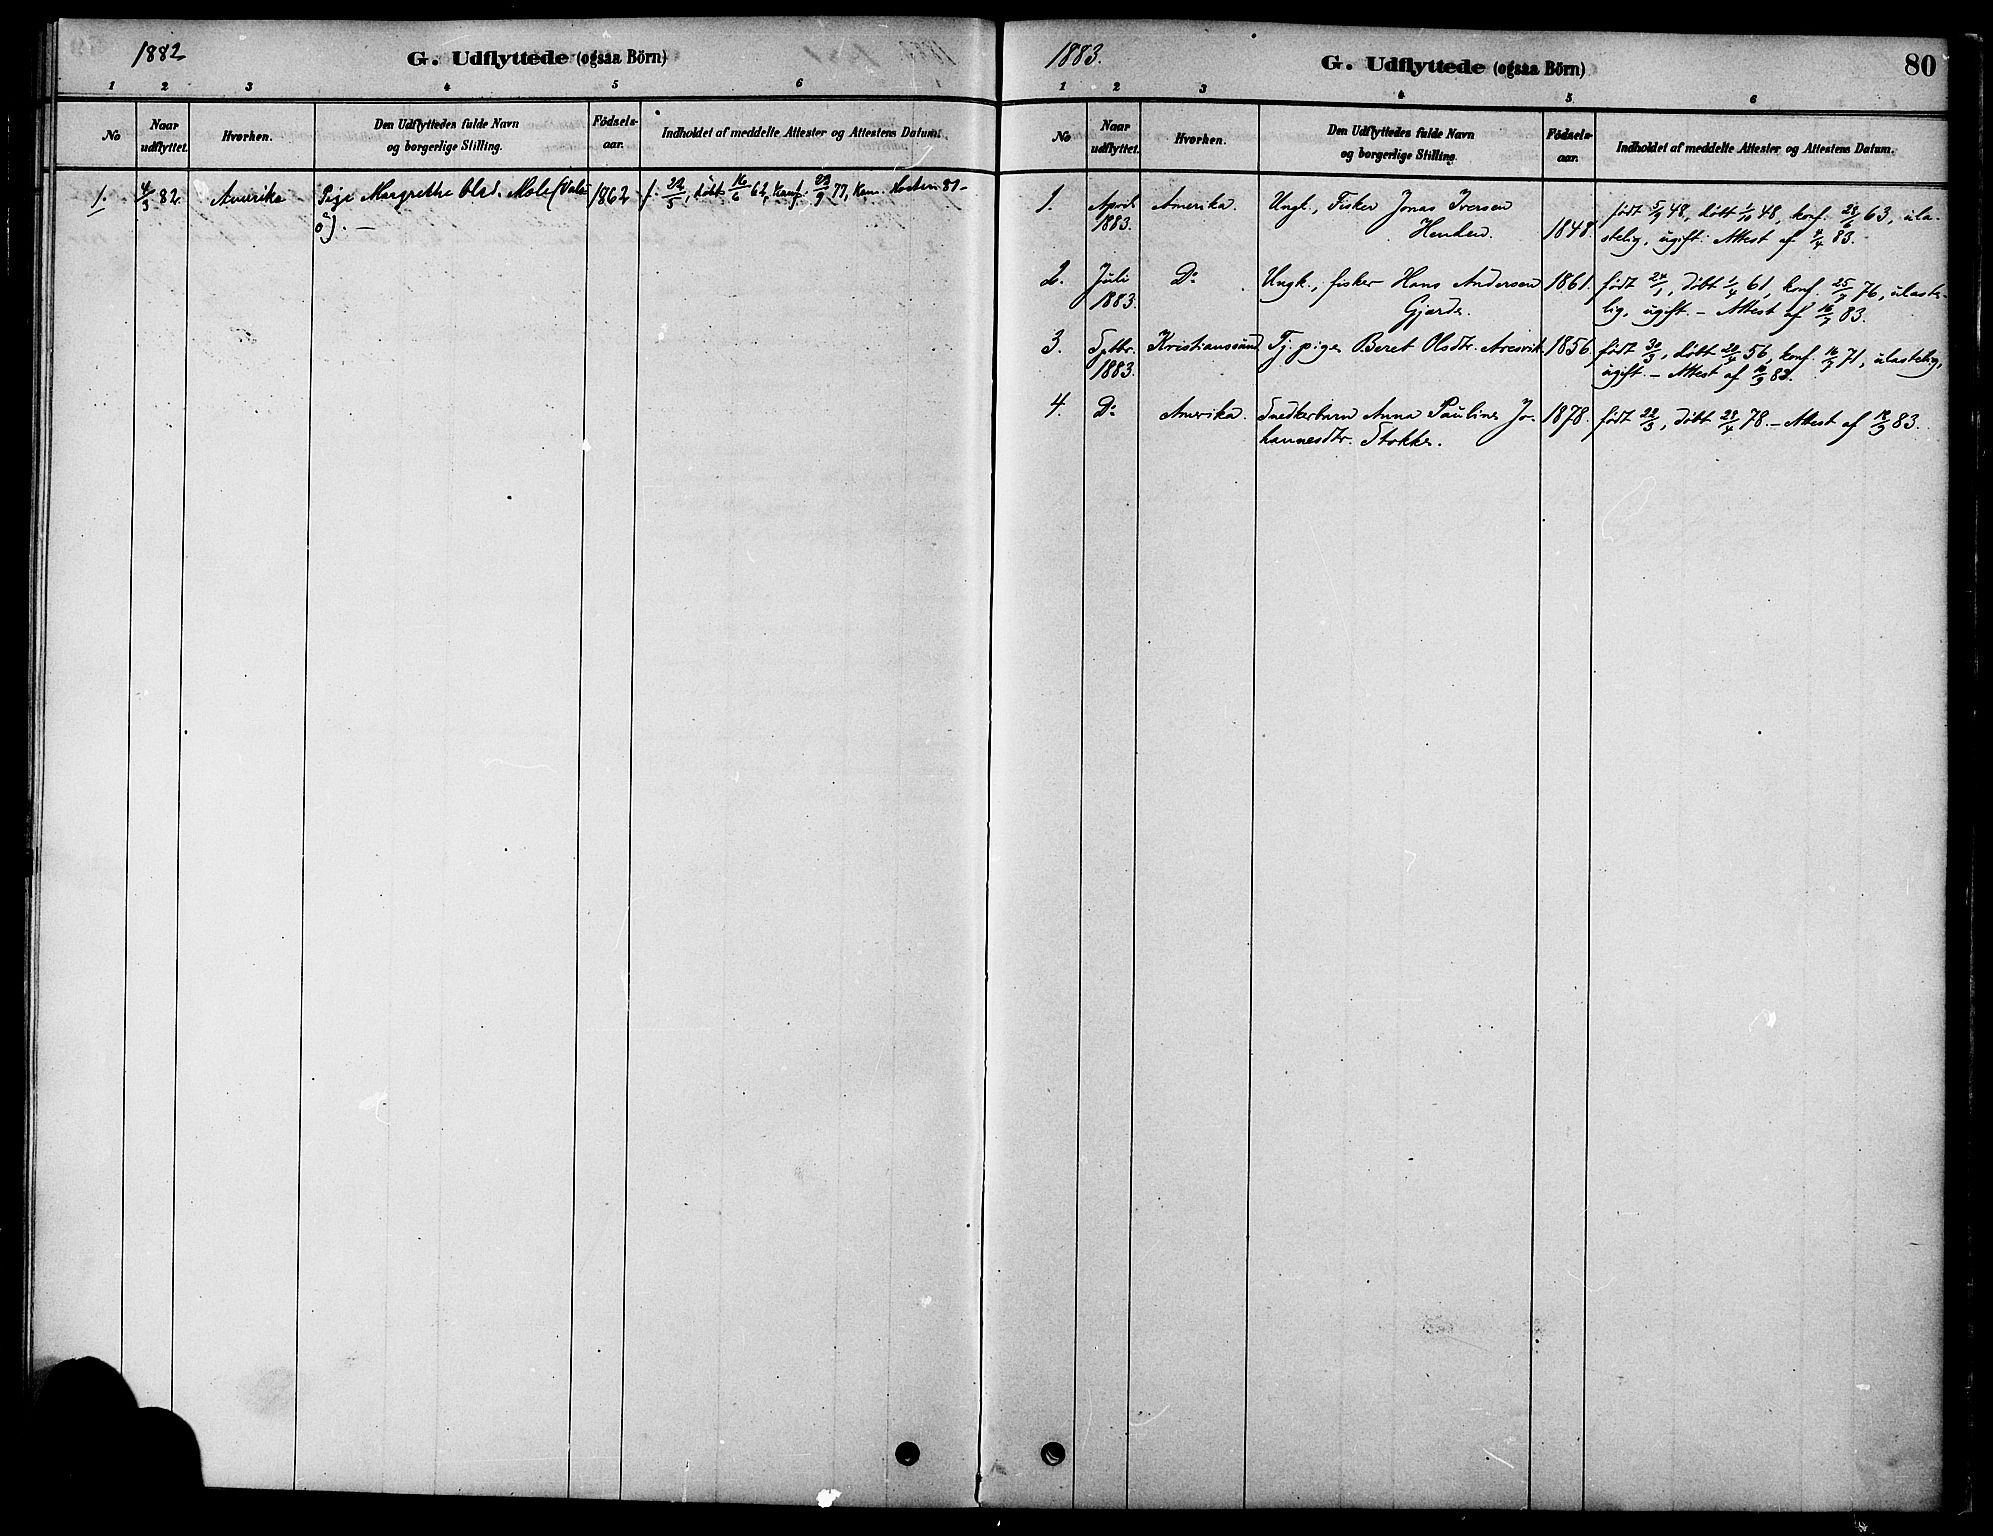 1882
G. Udflyttede (ogsaa Börn)
1 2 3 4 5 6
No
Naar udflyttet.
Hvorhen.
Den Udflyttedes fulde Navn
og borgerlige Stilling.
Födsels-
aar.
Indholdet af meddelte Attester og Attestens Datum.
1. 4/3 82. Amerika Pige Margrethe Olsd. 1862 f. 22/5, döbt 16/6 62, Konf. 23/9 77, Kom. Hösten 81 –
1883.
G. Udflyttede (ogsaa Börn)
80
1 2 3 4 5 6
No
Naar udflyttet.
Hvorhen.
Den Udflyttedes fulde Navn
og borgerlige Stilling.
Födsels-
aar.
Indholdet af meddelte Attester og Attestens Datum.
1. April Amerika. Ungk., Fisker Jonas Iversen født 5/9 48, döbt 1/10 48, konf. 28/6 63, ula-
1883. 1848. stelig, ugift. Attest af 4/4 83.
2. Juli Do Ungk., fisker Hans Andersen 1861. født 24/1, döbt 1/4 61, konf. 25/7 76, ulaste-
1883. Gjærde. lig, ugift. – Attest af 16/7 83.
3. Sptbr. Kristianssund Tj. pige Beret Olsdtr. Aresvik 1856. født 30/3, döbt 20/4 56, konf. 16/7 71, ulastelig,
1883. ugift. – Attest af 16/9 83.
4. Do Amerika. Snedkerbarn Anna Pauline Jo- 1878. født 22/3, döbt 28/4 78. – Attest af 18/9 83.
hannesdtr. Stokke.